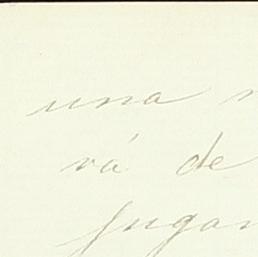 una
vá de
jugar